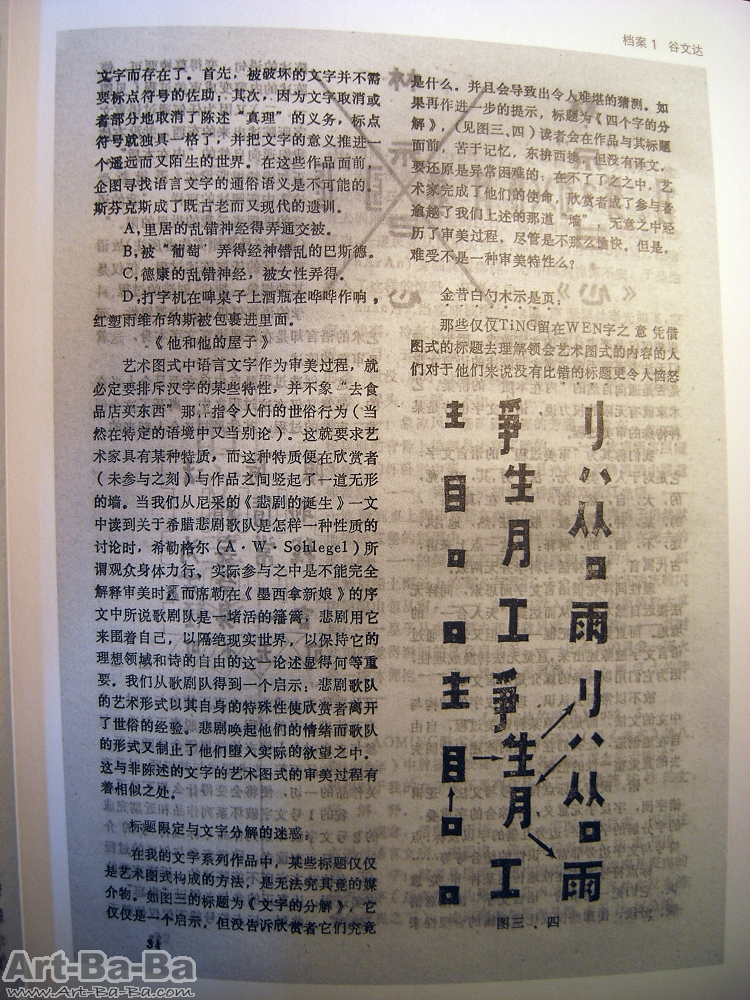 档案1 谷文达
文字而存在了。首先，被破坏的文字并不需
要标点符号的佐助；其次，因为文字取消或
者部分地取消了陈述“真理”的义务，标点
符号就独具一格了，并把文字的意义推进一
个遥远而又陌生的世界。在这些作品面前，
企图寻找语言文字的通俗语义是不可能的。
斯芬克斯成了既古老而又现代的遗训。
A，里居的乱错神经得弄通交被。
B，被“葡萄’弄得经神错乱的巴斯德。
C，德康的乱错神经，被女性弄得。
D，打字机在啤桌子上酒瓶在哗哗作响，
红塑雨维布纳斯被包裹进里面。
《他和他的屋子》
艺术图式中语言文字作为审美过程，就
必定要排斥汉字的某些特性，并不象“去食
品店买东西”那样指令人们的世俗行为（当
然在特定的语境中又当别论）。这就要求艺
术家具有某种特质，而这种特质便在欣赏者
（未参与之刻）与作品之间竖起了一道无形
的墙。当我们从尼采的《悲剧的诞生》一文
中读到关于希腊悲剧歌队是怎样一种性质的
讨论时，希勒格尔（A·W·Sohlegel）所
谓观众身体力行、实际参与之中是不能完全
解释审美时，而席勒在《墨西拿新娘》的序
文中所说歌剧队是一堵活的藩篱，悲剧用它
来围着自己，以隔绝现实世界，以保持它的
理想领域和诗的自由的这一论述显得何等重
要。我们从歌剧队得到一个启示：悲剧歌队
的艺术形式以其自身的特殊性使欣赏者离开
了世俗的经验。悲剧唤起他们的情绪而歌队
的形式又制止了他们堕入实际的欲望之中。
这与非陈述的文字的艺术图式的审美过程有
着相似之处。
标题限定与文字分解的迷惑：
在我的文字系列作品中，某些标题仅仅
是艺术图式构成的方法，是无法究其竟的媒
介物。如图三的标题为《文字的分解》，它
仅仅是一个启示，但没告诉欣赏者它们究竟
34
是什么。并且会导致出令人难堪的猜测。如
果再作进一步的提示，标题为《四个字的分
解》，（见图三、四）读者会在作品与其标题
面前，苦于记忆，东拼西揍，但没有译文，
要还原是异常困难的；在不了了之之中，艺
术家完成了他们的使命，欣赏者成了参与者
逾越了我们上述的那道“墙”，无意之中经
历了审美过程，尽管是不那么愉快。但是，
难受不是一种审美特性么？
金昔白勺木示是页：
那些仅仅TiNG留在WEN字之意凭借
图式的标题去理解领会艺术图式的内容的人
们对于他们来说没有比错的标题更令人愤怒
刂八从口雨刂八从口雨
爭生月工爭生月工
主目口口主目口口
图三、四
Art-Ba-Ba
www.Art-Ba-Ba.com